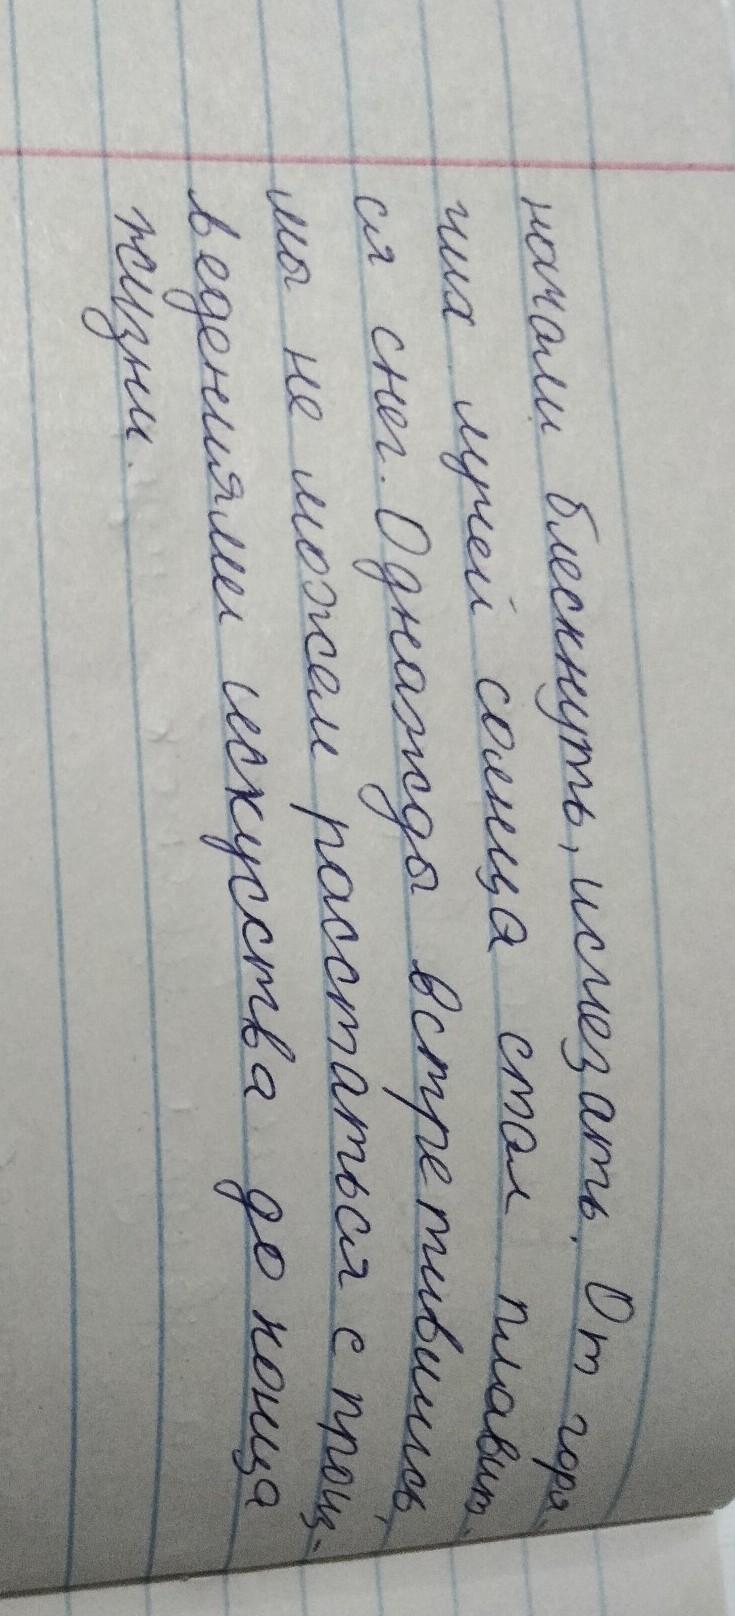 начали блескнуть, исчезать. От горя-
чих лучей солнца стал плавит-
ся снег. Однажды встретившись,
мы не можем расстаться с произ-
ведениями искуства до конца
жизни.